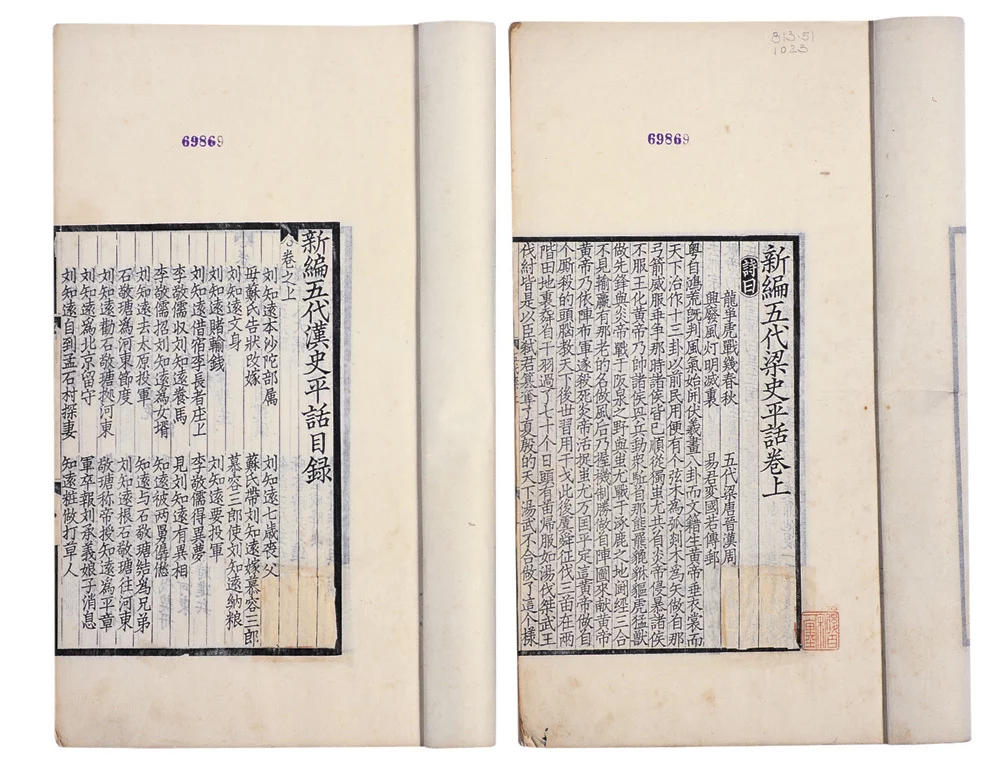 813.51
1023
69869
新編五代梁史平話卷上
詩曰
龍爭虎戰幾春秋　五代梁唐晉漢周
興廢風灯明滅裏　易君変國若傳郵
粤自鴻荒旣判風氣始開伏羲畫八卦而文籍生黃帝垂衣裳而
天下治作十三卦以前民用便有个弦木為弧剡木為矢做自那
弓箭威服乖爭那時諸侯皆已順從獨蚩尤共自炎帝侵暴諸侯
不服王化黃帝乃帥諸侯兵動衆駈自那熊羆貔貅貙虎猛獸
做先鋒與炎帝戰于阪泉之野與蚩尤戰于涿鹿之地闹經三合
不見輸贏有那老的名做風后乃握機制勝做自陣圖來献黃帝
黃帝乃依陣布軍遂殺死炎帝活捉蚩尤万国平定這黃帝做自
个廝殺的頭腦教天下後世習用干戈此後虞舜征伐三苗在两
階田地裏舞自干羽過了七十个日頭有苗帰服如湯伐桀武王
伐紂皆是以臣弒君篡奪了夏殷的天下湯武不合做了這个樣
69869
新編五代漢史平話目錄
卷之上
刘知遠本沙陀部属　刘知遠七歲喪父
母蘇氏告狀改嫁　蘇氏帶刘知遠嫁慕容三郎
刘知遠文身　慕容三郎使刘知遠納粮
刘知遠賭輸錢　刘知遠要投軍
刘知遠借宿李長者庄上　李敬儒得異夢
李敬儒収刘知遠養馬　見刘知遠有異相
李敬儒招刘知遠為女壻　知遠被两舅僝僽
刘知遠去太原投軍　知遠与石敬瑭結為兄弟
石敬瑭為河東節度　刘知遠根石敬瑭往河東
刘知遠勸石敬瑭據河東　敬瑭称帝授知遠為平章
刘知遠為北京留守　軍卒報刘承義娘子消息
刘知遠自到孟石村探妻　知遠粧做打草人